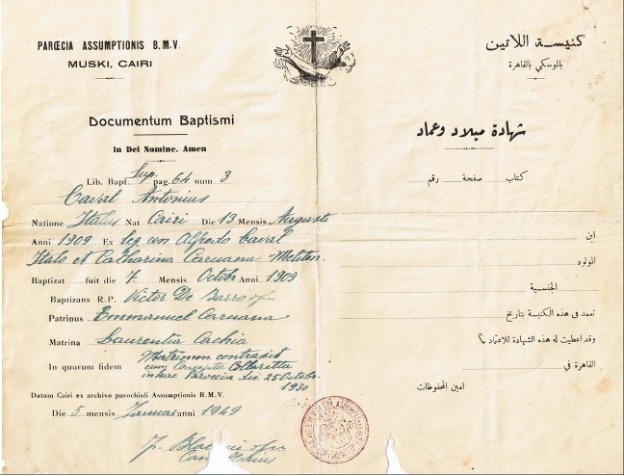 PARŒCIA ASSUMPTIONIS B.M.V.
MUSKI, CAIRI
Documentum Baptismi
In Dei Nomine. Amen
Lib. Bapt. Sup. pag. 64 num 3
Caval Antonius
Natione Italus Nat Cairi Die 13 Mensis Augusti
Anni 1909 Ex leg con Alfredo Caval
Italo et Catharina Caruana Meliten.
Baptizat fuit die 7 Mensis Octobr Anni 1909
Baptizans R.P. Victor De Barro ofm
Patrinus Emmanuel Caruana
Matrina Laurentia Cachia
In quorum fidem Matrimon contraxit
cum Concepta Collaretta
in hac Parœcia die 25 Octobr.
1930
Datum Cairi ex archivo parochiali Assumptionis B.M.V.
Die 5 mensis Januar anni 1949
كنيسة اللاتين
بالموسكي بالقاهرة
شهادة ميلاد وعماد
كتاب صفحة رقم
ابن
المولود
الجنسية
تعمد في هذه الكنيسة بتاريخ
وقد اعطيت له هذه الشهادة للاعتماد
القاهرة في
امين المحفوظات